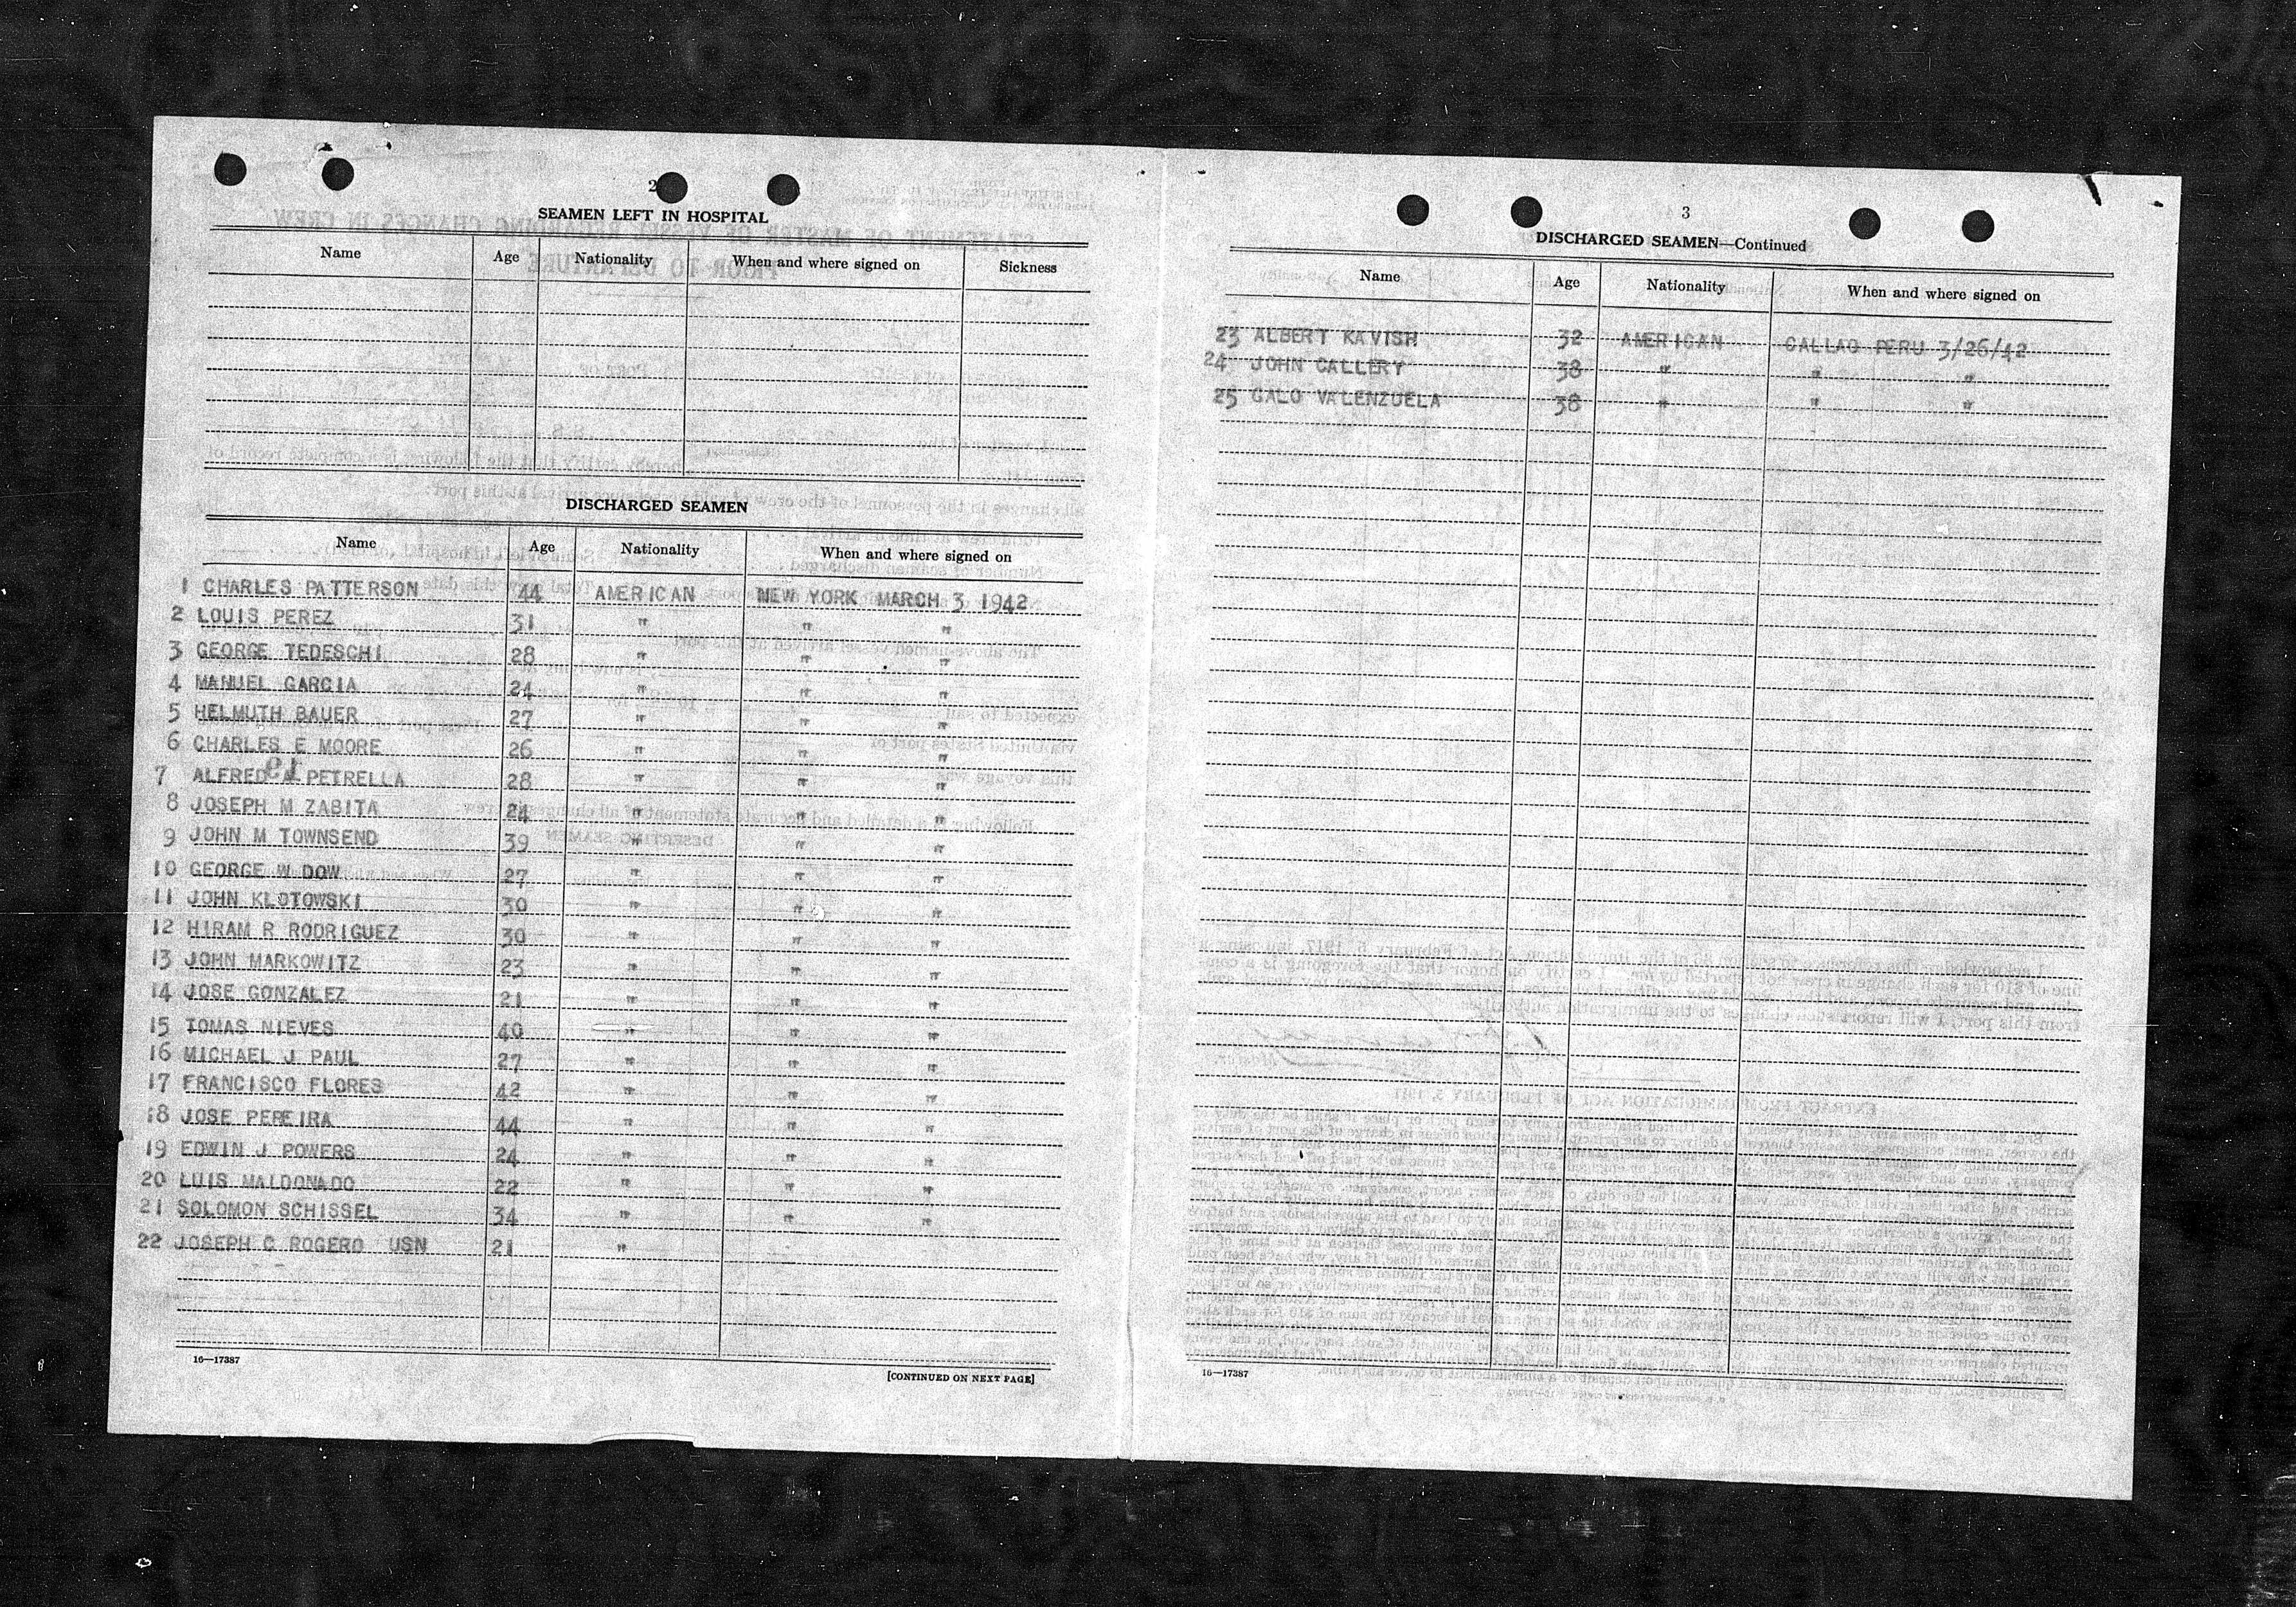 2
SEAMEN LEFT IN HOSPITAL
Name Age Nationality When and where signed on Sickness
DISCHARGED SEAMEN
Name Age Nationality When and where signed on
1 CHARLES PATTERSON 44 AMERICAN NEW YORK MARCH 3 1942
2 LOUIS PEREZ 31 " " "
3 GEORGE TEDESCHI 28 " " "
4 MANUEL GARCIA 24 " " "
5 HELMUTH BAUER 27 " " "
6 CHARLES E MOORE 26 " " "
7 ALFRED A PETRELLA 28 " " "
8 JOSEPH M ZABITA 24 " " "
9 JOHN M TOWNSEND 39 " " "
10 GEORGE W DOW 27 " " "
11 JOHN KLOTOWSKI 30 " " "
12 HIRAM R RODRIGUEZ 30 " " "
13 JOHN MARKOWITZ 23 " " "
14 JOSE GONZALEZ 21 " " "
15 TOMAS NIEVES 40 " " "
16 MICHAEL J PAUL 27 " " "
17 FRANCISCO FLORES 42 " " "
18 JOSE PEREIRA 44 " " "
19 EDWIN J POWERS 24 " " "
20 LUIS MALDONADO 22 " " "
21 SOLOMON SCHISSEL 34 " " "
22 JOSEPH C ROGERO USN 21 "
16—17387
[CONTINUED ON NEXT PAGE]
3
DISCHARGED SEAMEN—Continued
Name Age Nationality When and where signed on
23 ALBERT KAVISH 32 AMERICAN CALLAO PERU 3/26/42
24 JOHN CALLERY 38 " " "
25 GALO VALENZUELA 38 " " "
16—17387